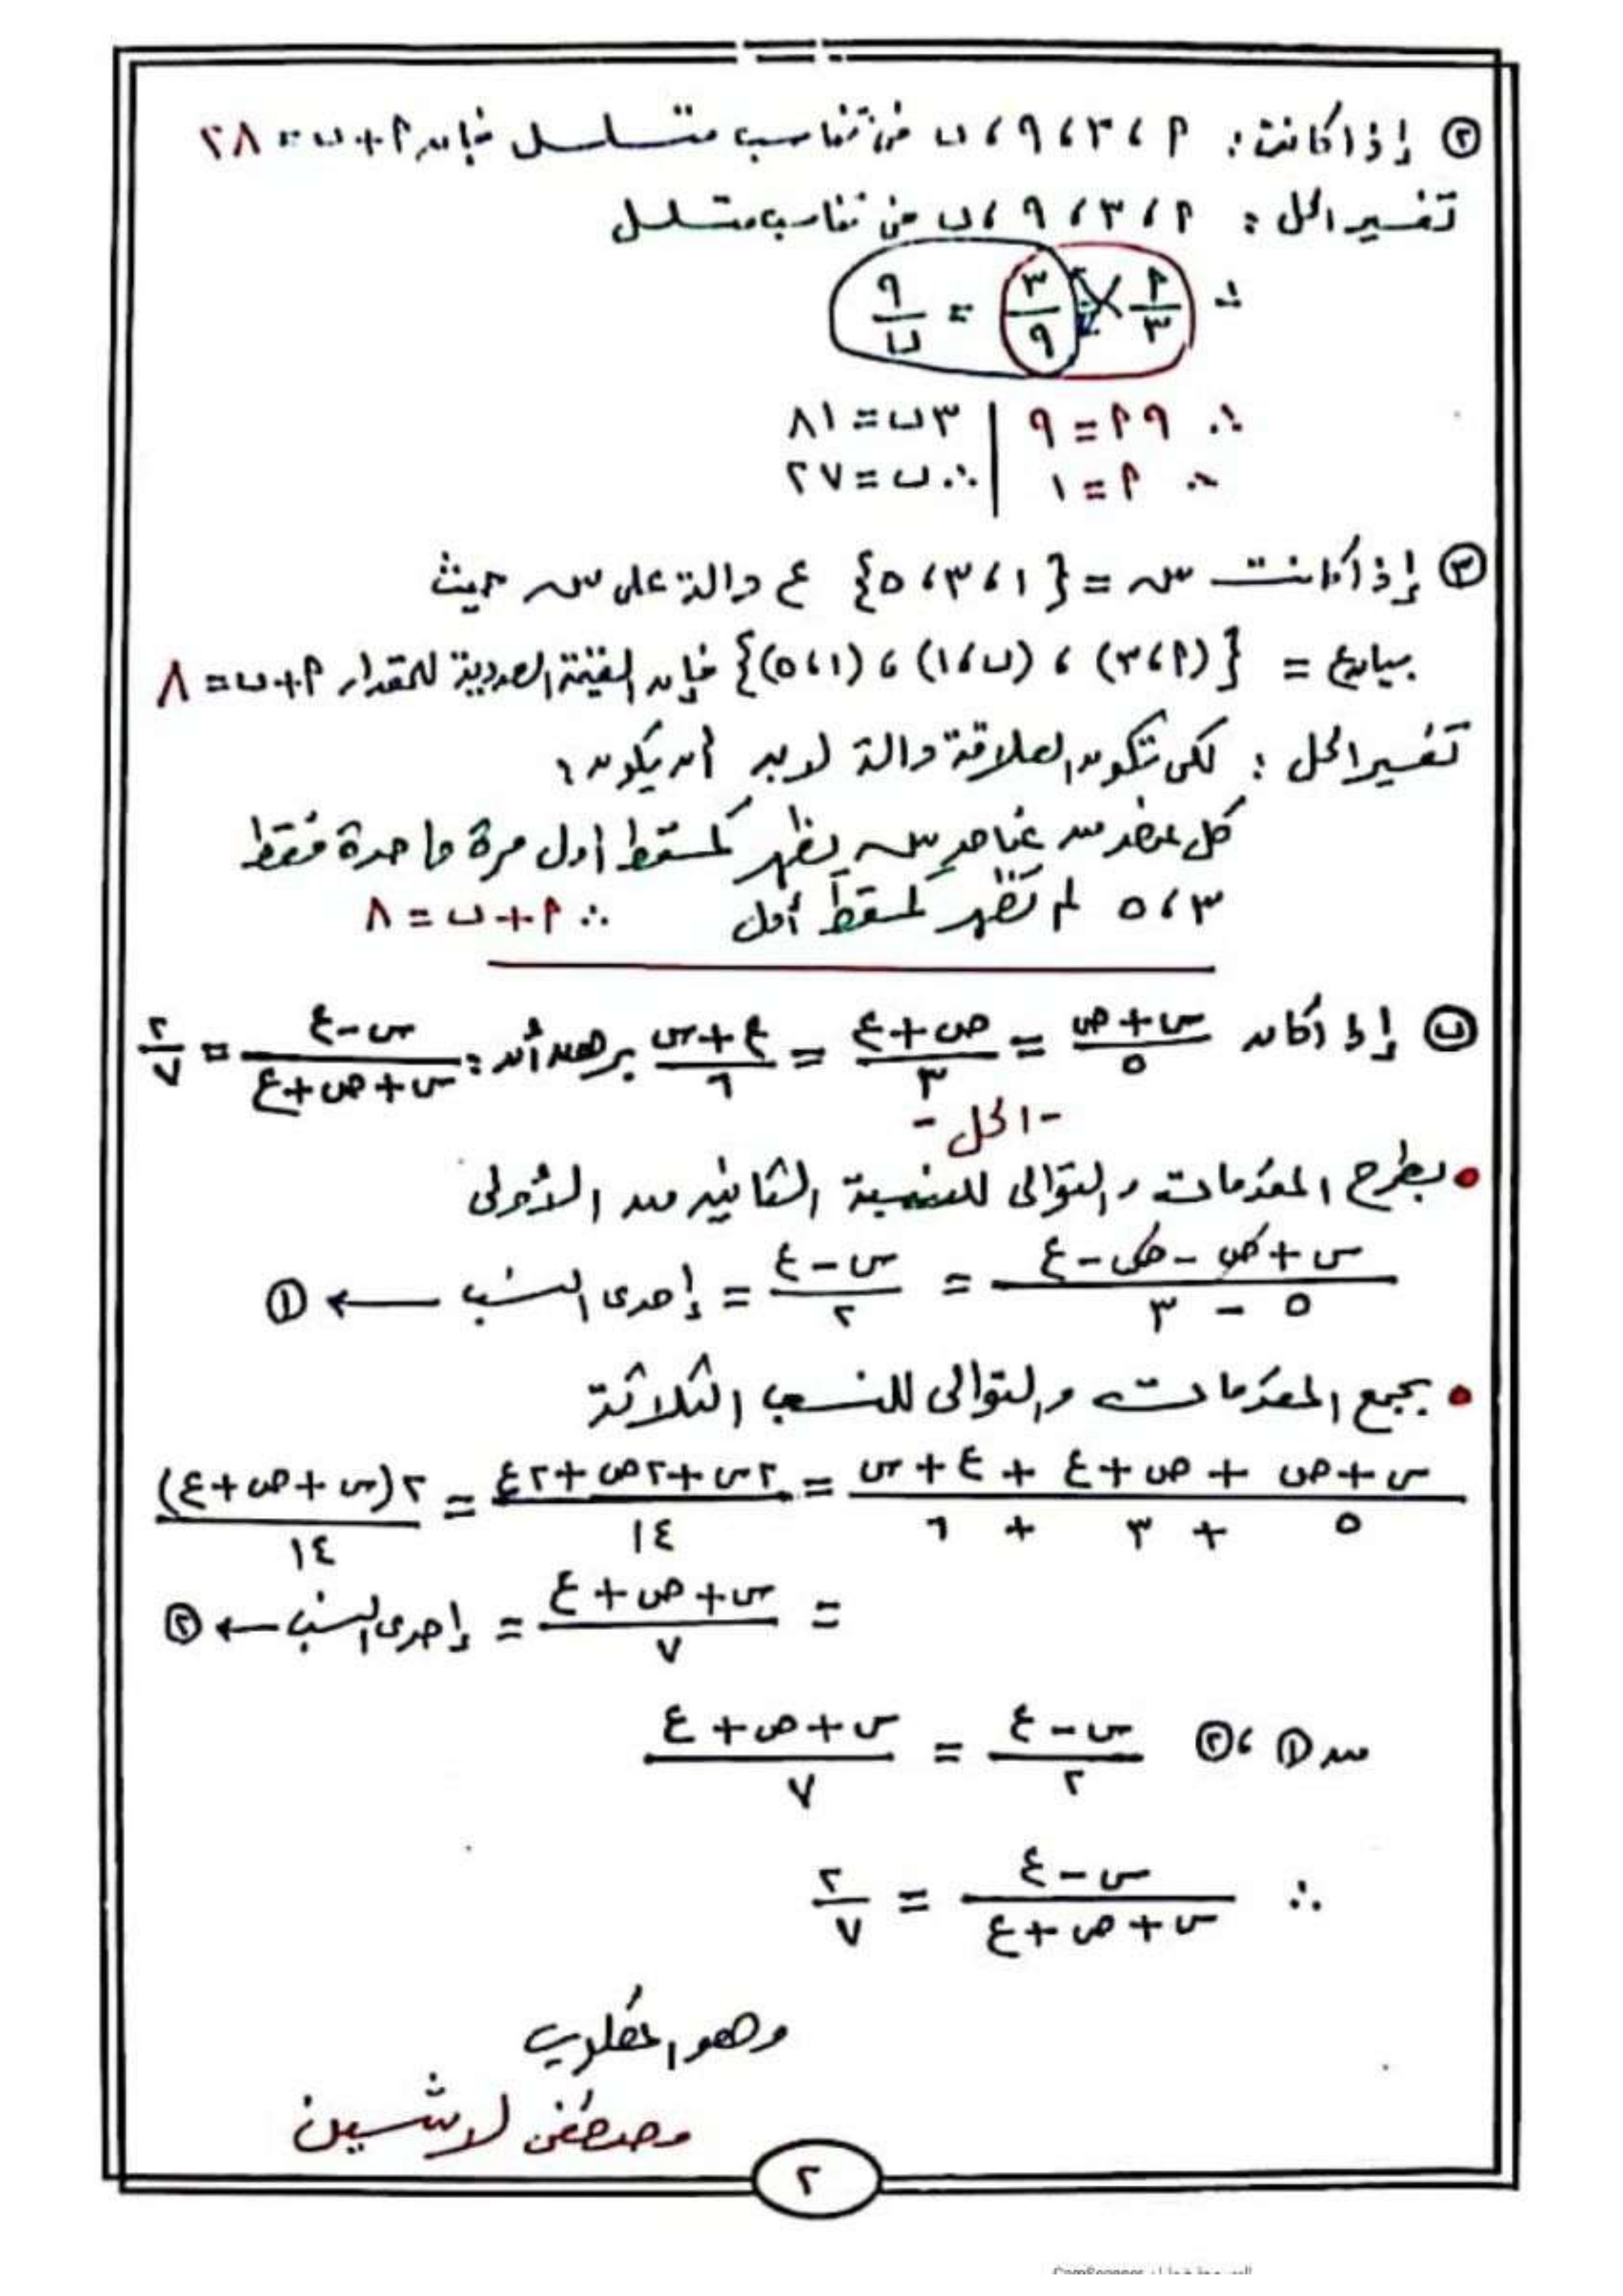 ٢ إذا كانت : ٢ ، ٣ ، ٩ ، ب فى تناسب متسلسل فإن ٢ + ب = ٢٨
تفسير الحل : ٢ ، ٣ ، ٩ ، ب فى تناسب متسلسل
∴ ٢/٣ = ٣/٩ = ٩/ب
∴ ٩ ٢ = ٩ | ٣ ب = ٨١
∴ ٢ = ١ | ∴ ب = ٢٧
٣ إذا كانت س = {١ ، ٣ ، ٥} ع دالة على س حيث
بيان ع = {(٢ ، ٣) ، (ب ، ١) ، (١ ، ٥)} فإن القيمة العددية للمقدار ٢ + ب = ٨
تفسير الحل : لكى تكون العلاقة دالة لابد أن يكون :
كل عنصر من عناصر س يظهر كمسقط أول مرة واحدة فقط
٣ ، ٥ لم تظهر كمسقط أول ∴ ٢ + ب = ٨
ب إذا كان (س + ص)/٥ = (ص + ع)/٣ = (ع + س)/٦ برهن أن : (س - ع)/(س + ص + ع) = ٢/٧
- الحل -
• بطرح المقدمات والتوالى للنسبة الثانية من الأولى
(س + ص - ص - ع)/(٥ - ٣) = (س - ع)/٢ = إحدى النسب ← ١
• بجمع المقدمات والتوالى للنسب الثلاثة
(س + ص + ص + ع + ع + س)/(٥ + ٣ + ٦) = (٢س + ٢ص + ٢ع)/١٤ = ٢(س + ص + ع)/١٤
= (س + ص + ع)/٧ = إحدى النسب ← ٢
من ١ ، ٢ (س - ع)/٢ = (س + ص + ع)/٧
∴ (س - ع)/(س + ص + ع) = ٢/٧
وهو المطلوب
مصطفى لاشين
٢